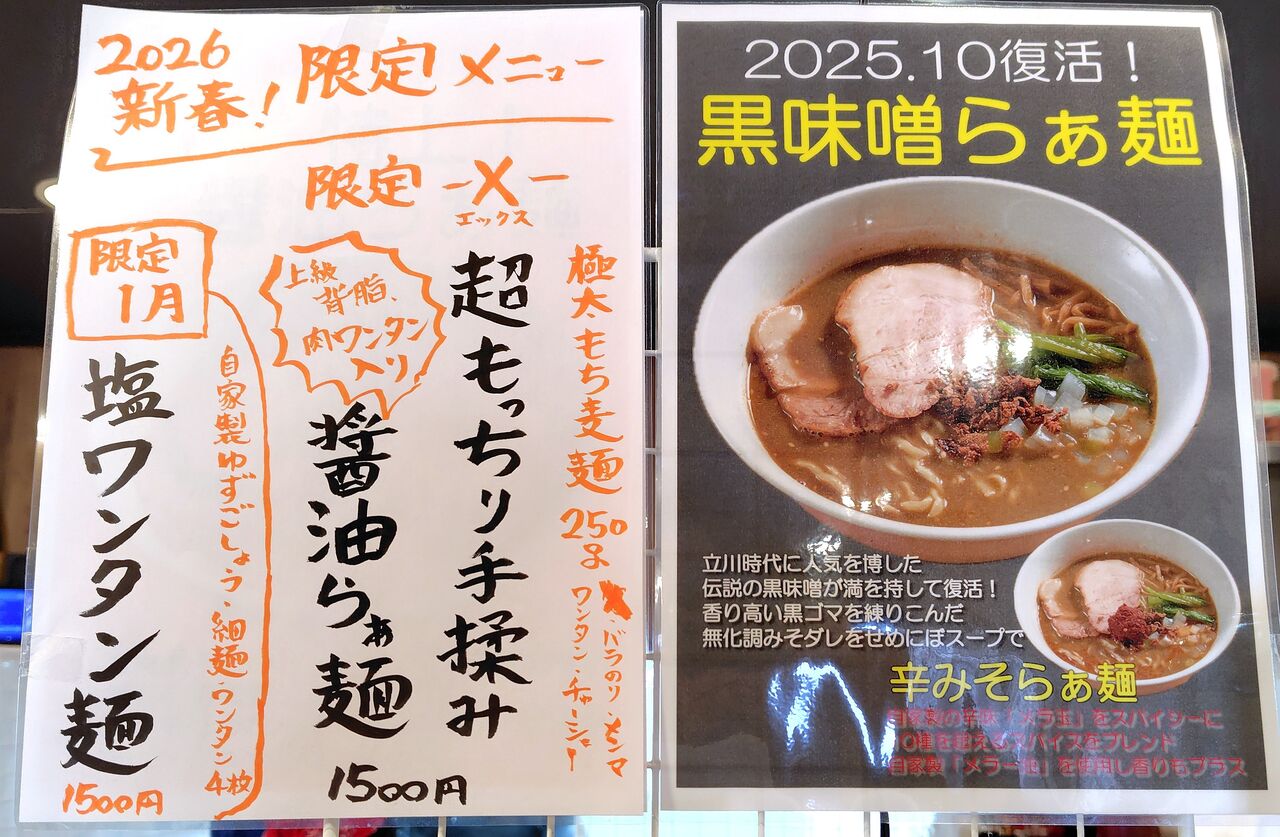 2026
新春!
限定メニュー
限定 -X-
エックス
極太もち麦麺 250g
バラのり・メンマ
ワンタン・チャーシュー
超もっちり手揉み
上級
背脂、
肉ワンタン
入り
醤油らぁ麺
1500円
限定
1月
自家製ゆずごしょう・細麺・ワンタン4枚
塩ワンタン麺
1500円
2025.10復活!
黒味噌らぁ麺
立川時代に人気を博した
伝説の黒味噌が満を持して復活!
香り高い黒ゴマを練りこんだ
無化調みそダレをせめにぼスープで
辛みそらぁ麺
自家製の辛味「メラ玉」をスパイシーに
10種を超えるスパイスをブレンド
自家製「メラー油」を使用し香りもプラス